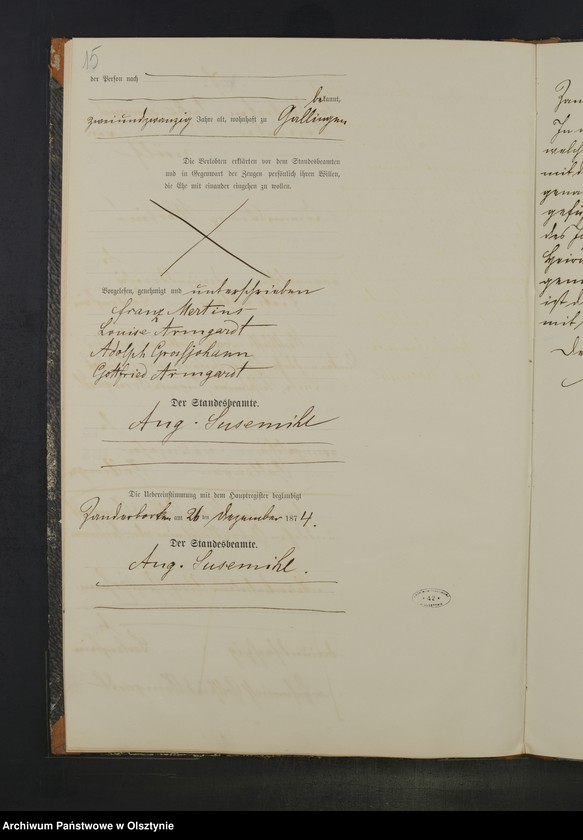 15
der Person nach
bekannt,
zweiundzwanzig Jahre alt, wohnhaft zu Gallingen
Die Verlobten erklärten vor dem Standesbeamten
und in Gegenwart der Zeugen persönlich ihren Willen,
die Ehe mit einander eingehen zu wollen.
Vorgelesen, genehmigt und unterschrieben
Franz Mertins
Louise Armgardt
Adolph Grossjohann
Gottfried Armgardt
Der Standesbeamte.
Aug. Susemihl
Die Uebereinstimmung mit dem Hauptregister beglaubigt
Zanderborken am 26 ten Dezember 1874.
Der Standesbeamte.
Aug. Susemihl.
42
In
welch
mit d
des
ist d
mit
Archiwum Państwowe w Olsztynie